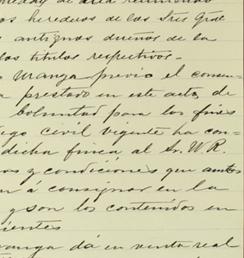 los herederos de las Srès
antiguos dueños de la
los títulos respectivos.
Uranga previo el consen
prestado en este acto, de
voluntad para los fines
civil vigente ha con
dicha finca al Sr. W. R.
y condiciones que antes
á consignar en la
y son los contenidos en
ientes
uranga dá en venta real